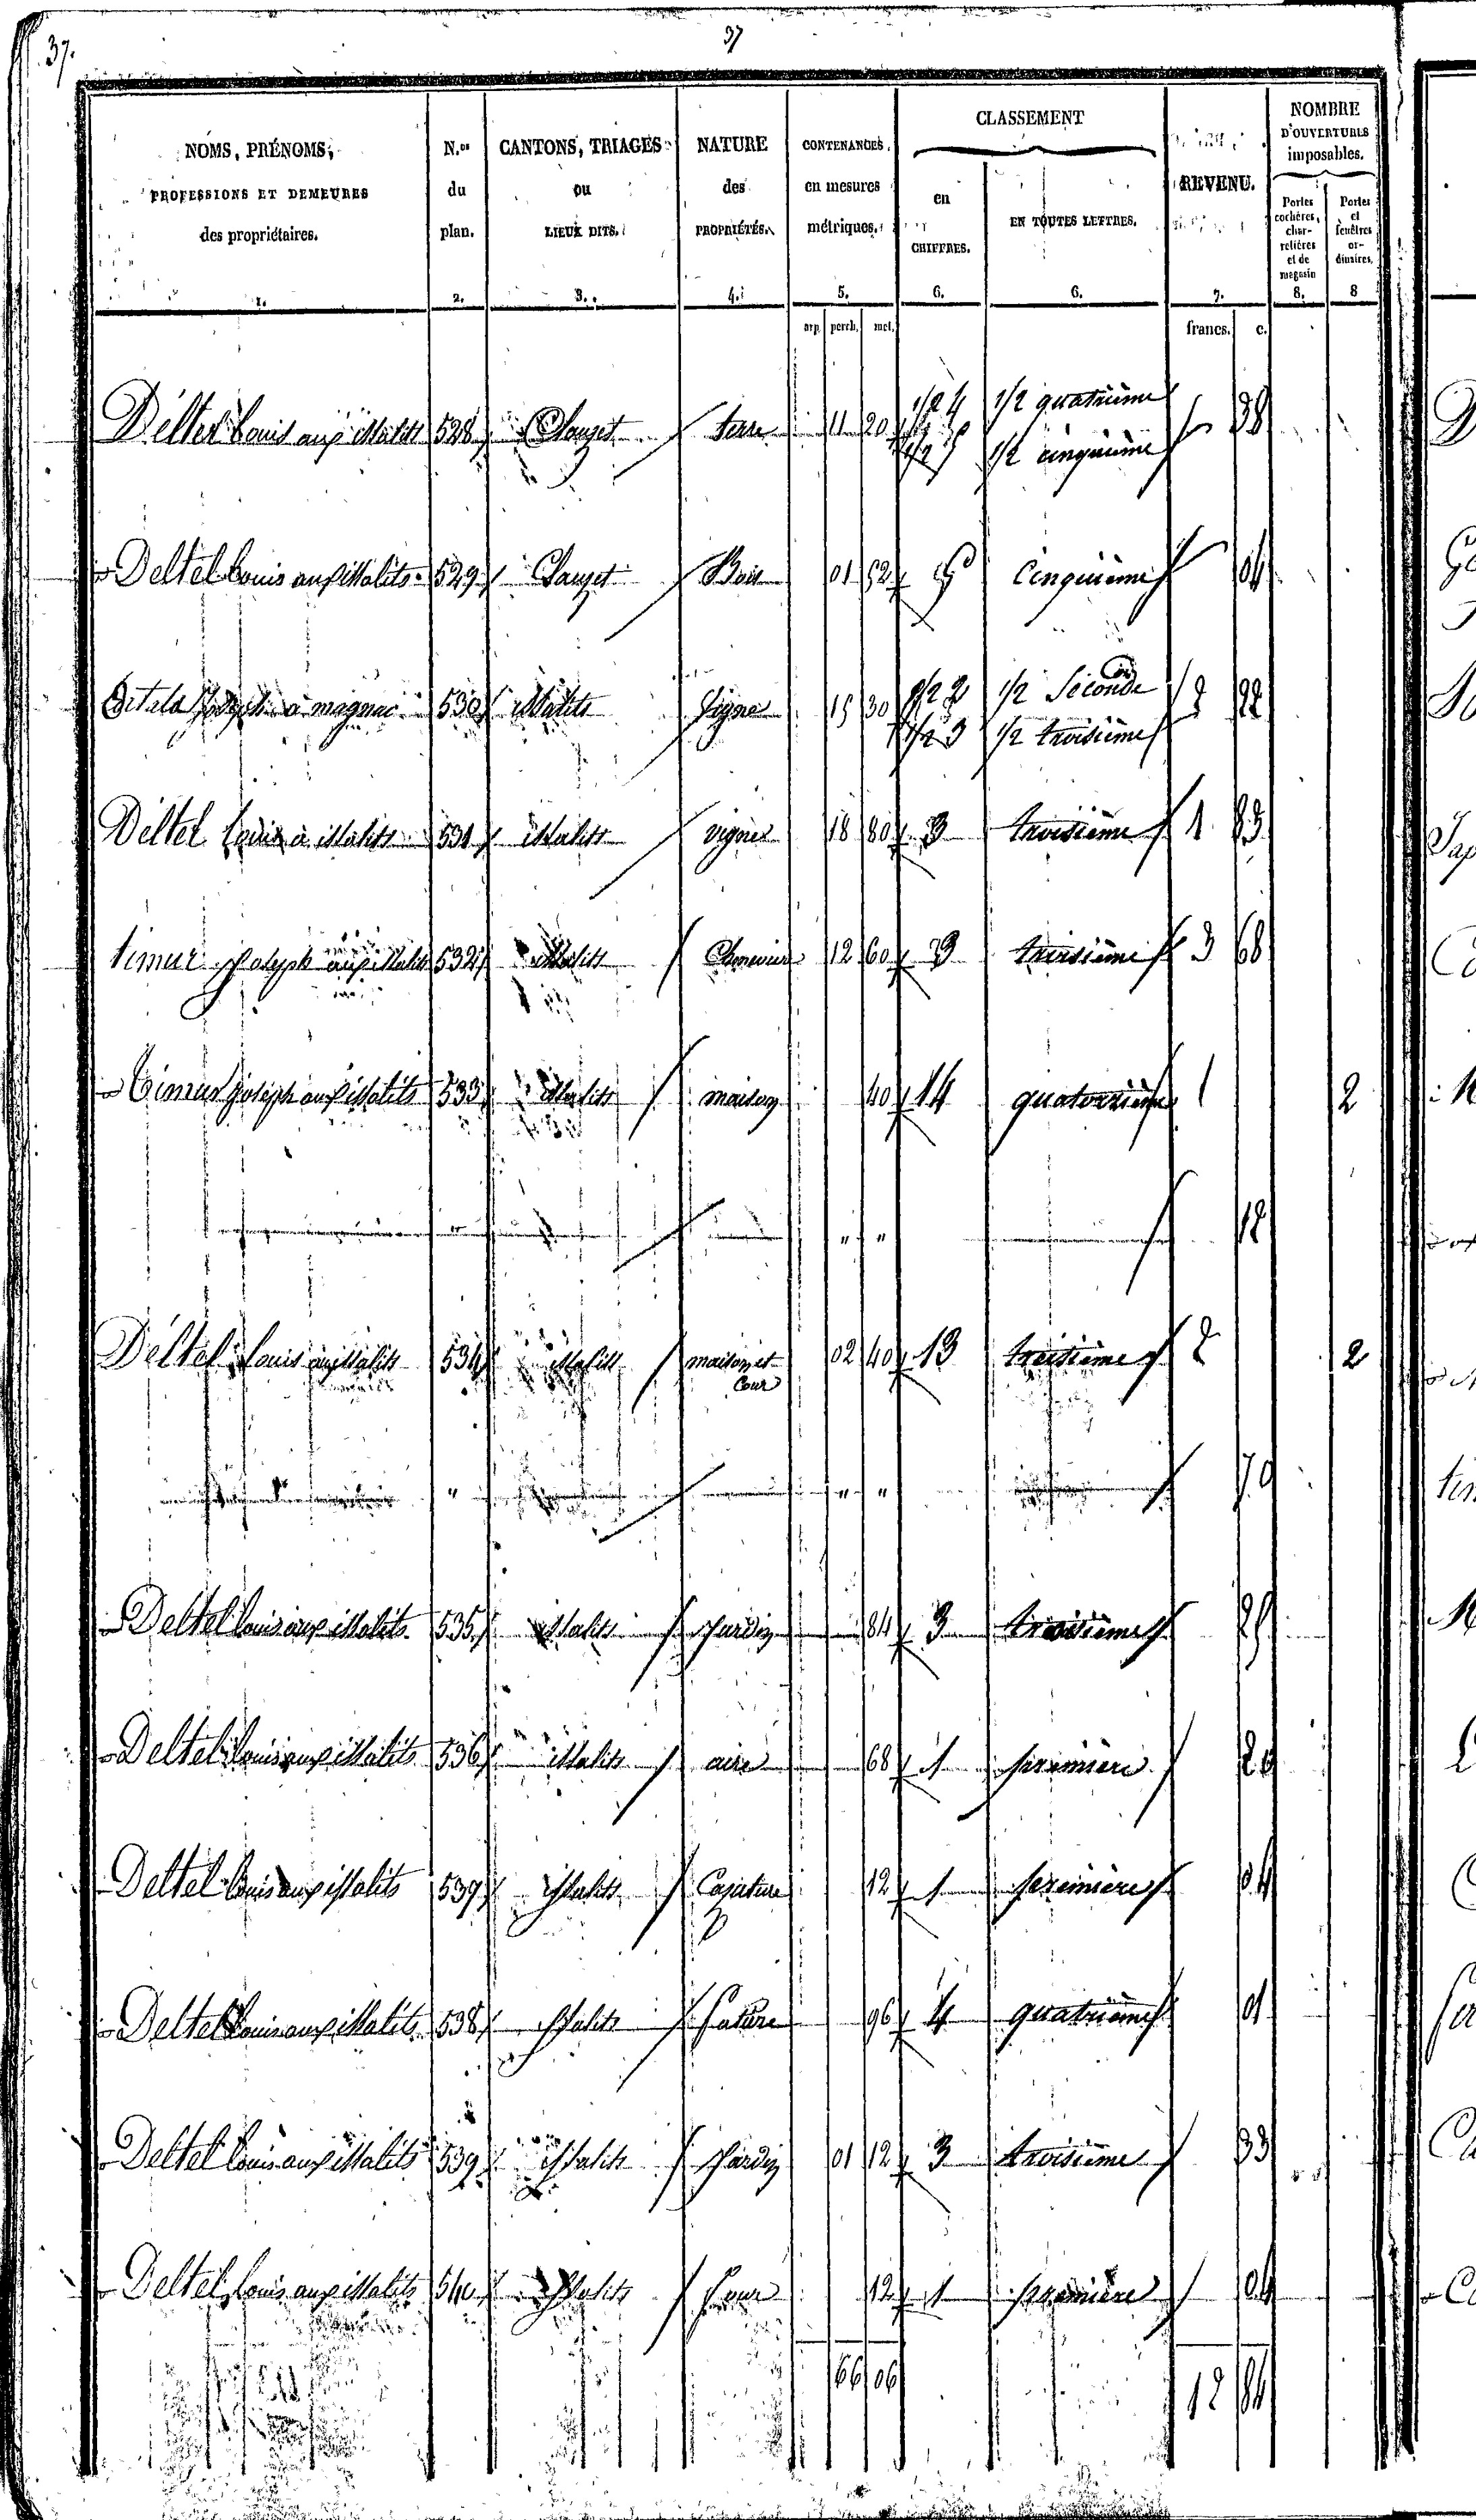 37.
37
NOMS, PRÉNOMS, PROFESSIONS ET DEMEURES des propriétaires. 1.
N.os du plan. 2.
CANTONS, TRIAGES ou LIEUX DITS. 3.
NATURE des PROPRIÉTÉS. 4.
CONTENANCES en mesures métriques. 5.
CLASSEMENT
en CHIFFRES. 6.
EN TOUTES LETTRES. 6.
REVENU. 7.
NOMBRE D'OUVERTURES imposables.
Portes cochères, charretières et de magasin 8.
Portes et fenêtres ordinaires. 8
arp. perch. met. francs. c.
Déltel Louis aux issalits 528 Clauzet terre 11 20 1/2 4 1/2 quatrième 38
1/2 5 1/2 cinquième
Deltel Louis aux issalits 529 Clauzet Bois 01 52 5 Cinquième 04
Joseph à magnac 530 issalits Vigne 15 30 1/2 2 1/2 Seconde 2 22
1/2 3 1/2 troisième
Déltel Louis à issalits 531 issalits vigne 18 80 3 troisième 1 83
timur Joseph aux issalits 532 issalits Chenevier 12 60 3 troisième 3 68
timur joseph aux issalits 533 issalits maison 40 14 quatorzième 1 2
" " " 12
Déltel Louis aux issalits 534 issalits maison et Cour 02 40 13 treisième 2 2
" " " 70
Deltel Louis aux issalits 535 issalits Jardin 84 3 troisième 25
Deltel Louis aux issalits 536 issalits aire 68 1 première 20
Deltel Louis aux issalits 537 issalits 12 1 première 04
Deltel Louis aux issalits 538 issalits Pature 96 4 quatrième 01
Deltel Louis aux issalits 539 issalits Jardin 01 12 3 troisième 33
Deltel Louis aux issalits 540 issalits 12 1 première 04
66 06 12 84